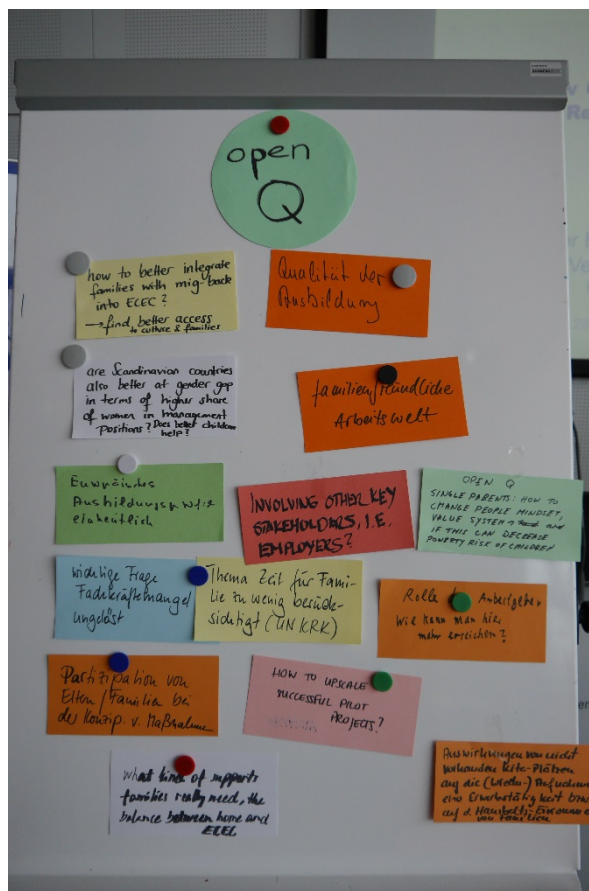 open
Q
how to better integrate
families with mig-back
into ECEC?
→ find better access
to culture & families
Qualität der
Ausbildung
are Scandinavian countries
also better at gender gap
in terms of higher share
of women in management
positions? Does better childcare
help?
familienfreundliche
Arbeitswelt
Europäisches
Ausbildungs
INVOLVING OTHER KEY
STAKEHOLDERS, I.E.
EMPLOYERS?
OPEN Q
SINGLE PARENTS: HOW TO
CHANGE PEOPLE MINDSET,
VALUE SYSTEM → and
IF THIS CAN DECREASE
POVERTY RISK OF CHILDREN
wichtige Frage
Fachkräftemangel
ungelöst
Thema Zeit für Fami-
lie zu wenig berück-
sichtigt (UN KRK)
Rolle Arbeitgeber
Wie kann man hier
mehr erreichen?
Partizipation von
Eltern/Familien bei
der Konzip. v. Maßnahmen
HOW TO UPSCALE
SUCCESSFUL PILOT
PROJECTS?
what kind of supports
families really need, the
balance between home and
ECEC
Auswirkungen von nicht
vorhanden Kita-Plätzen
auf die (Wieder-) Aufnahme
eine Erwerbstätigkeit bzw
auf d. Haushalts-Einkommen
von Familien